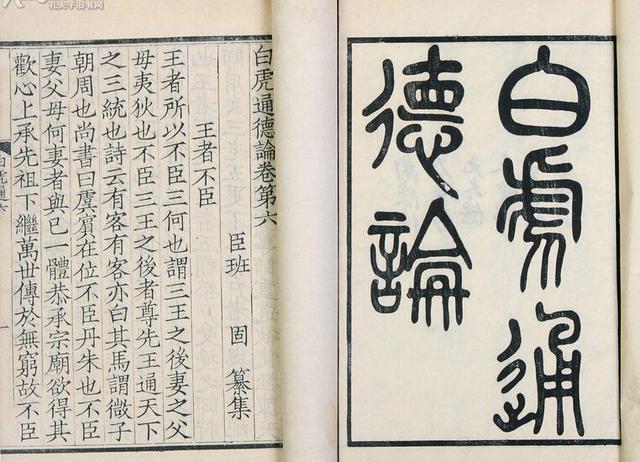 白虎通
德論
白虎通德論卷第六
臣班 固 纂集
王者不臣
王者所以不臣三何也謂三王之後妻之父
母夷狄也不臣三王之後者尊先王通天下
之三統也詩云有客有客亦白其馬謂微子
朝周也尚書曰虞賓在位不臣丹朱也不臣
妻父母何妻者與己一體恭承宗廟欲得其
歡心上承先祖下繼萬世傳於無窮故不臣
白虎通六
一